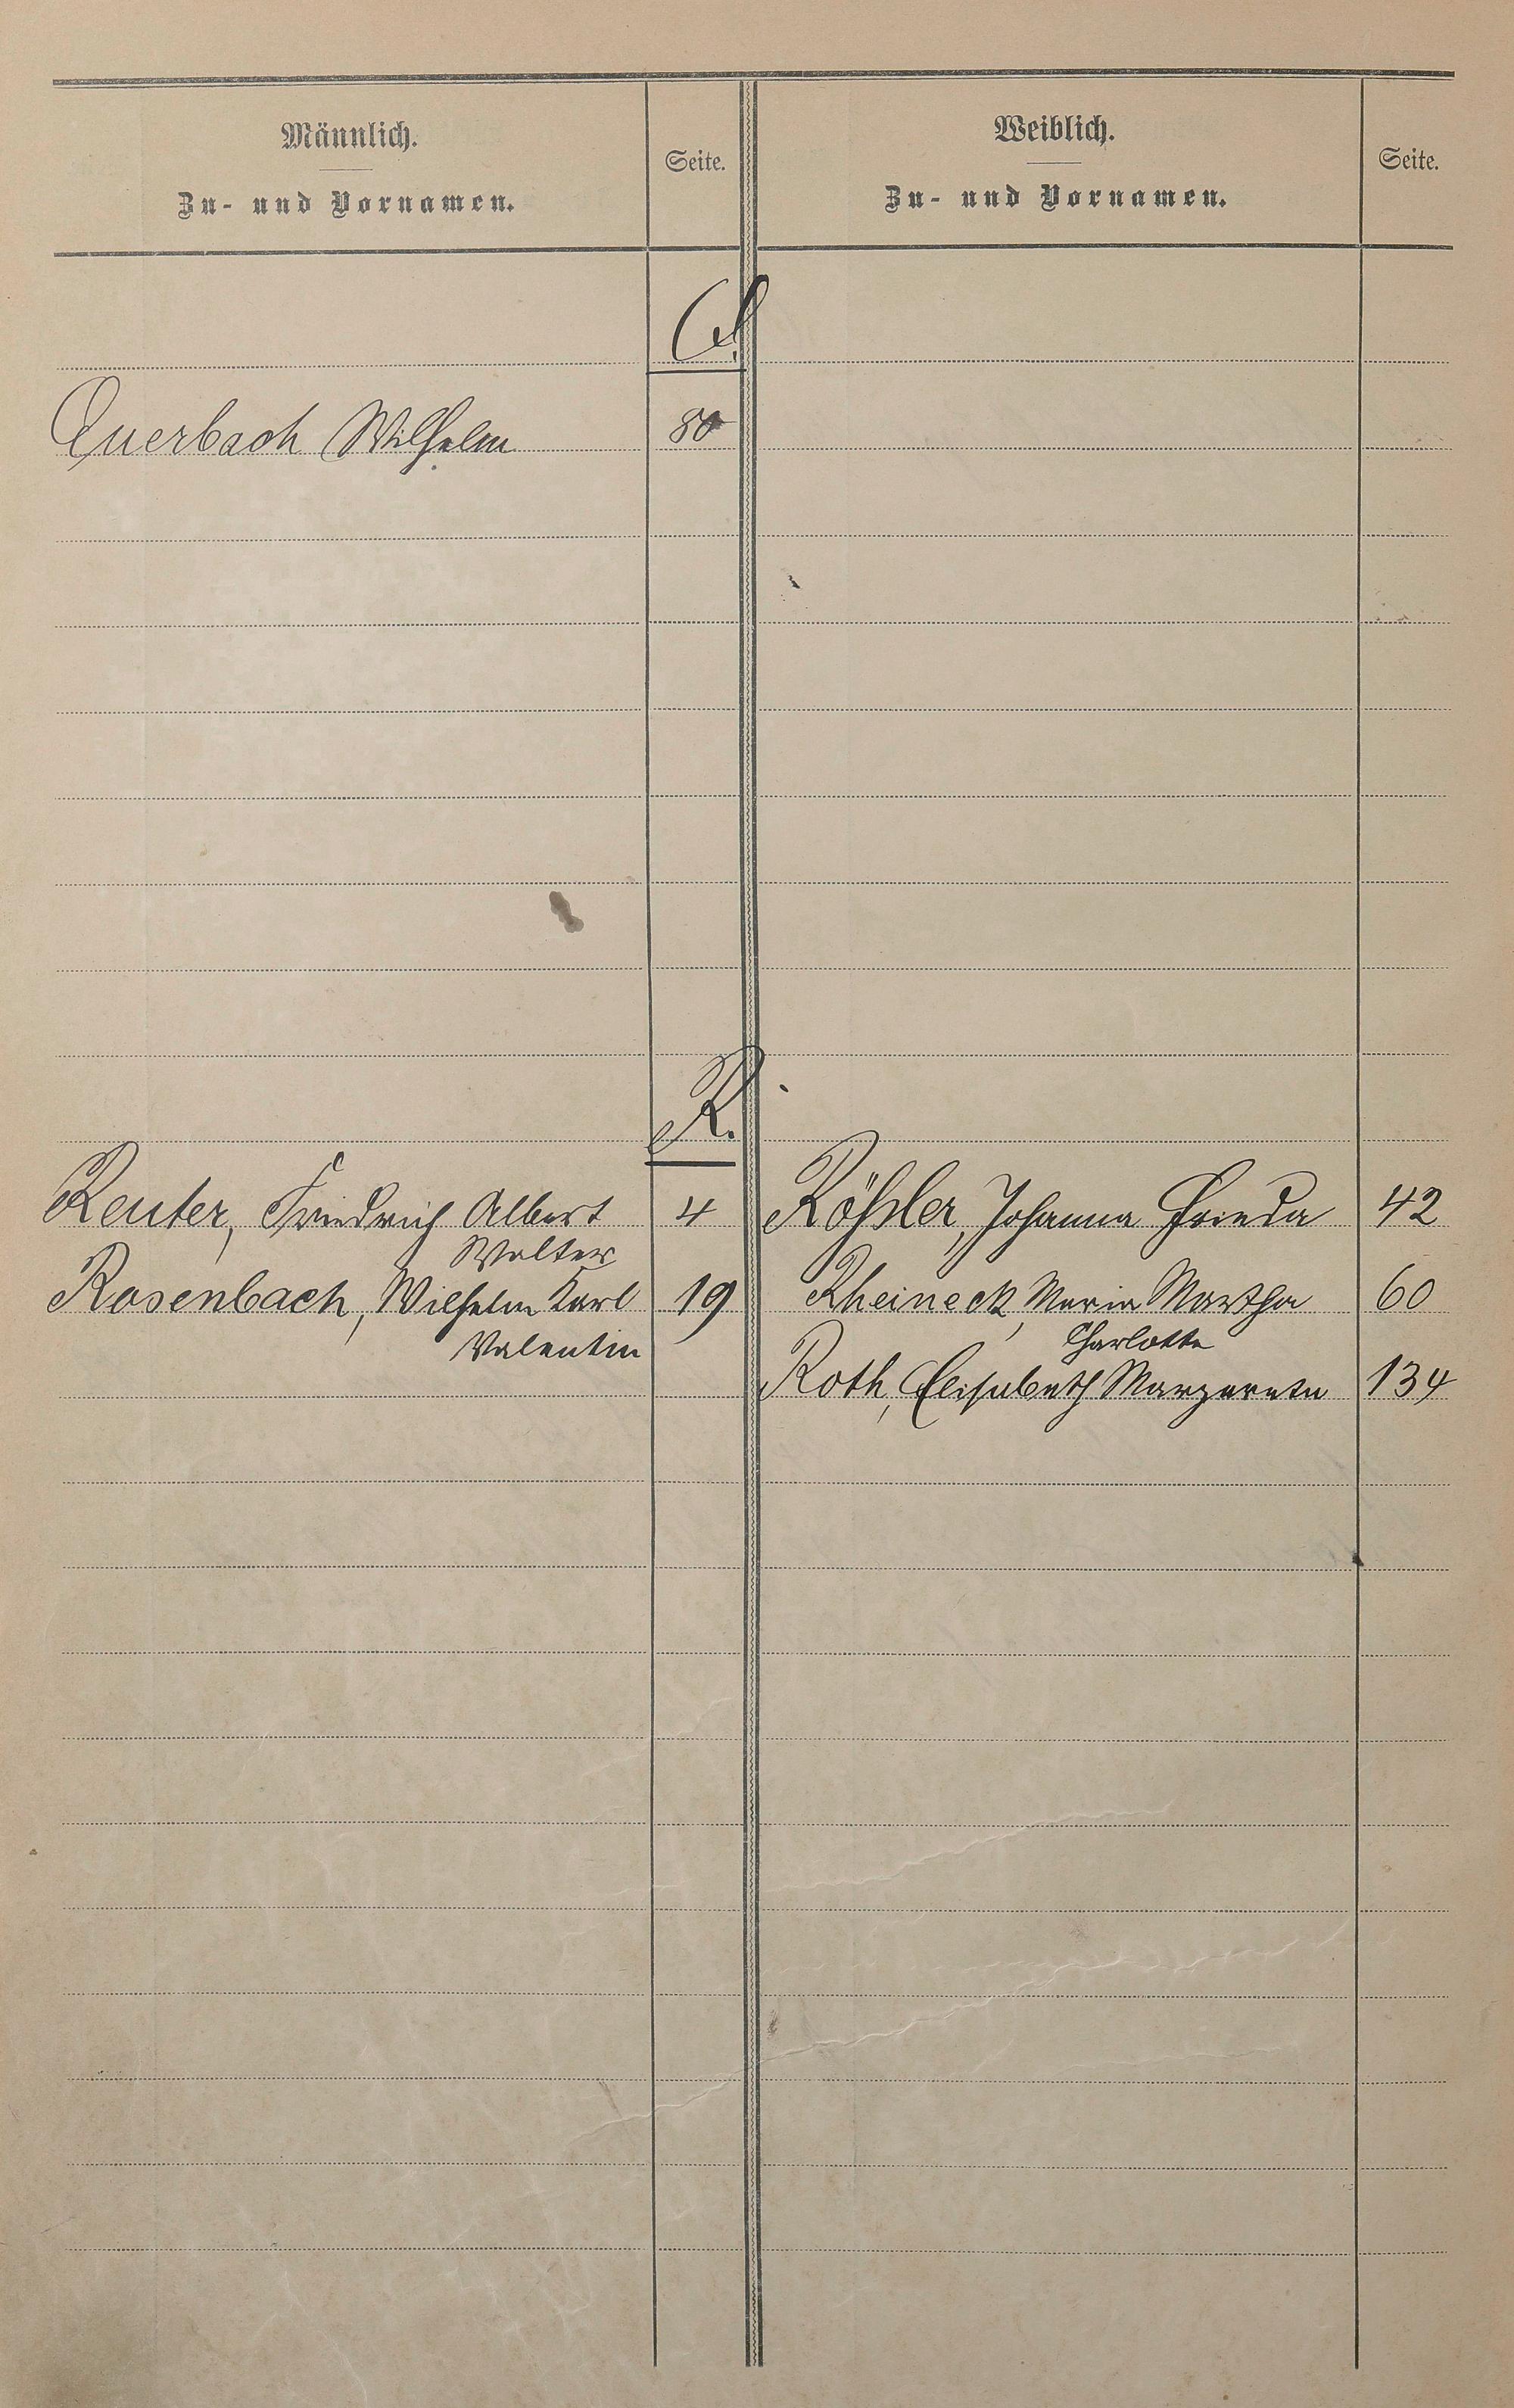 Männlich.
Zu- und Vornamen.
Seite.
Weiblich.
Zu- und Vornamen.
Seite.
Q.
Querbach Wilhelm 80
R.
Reuter, Friedrich Albert 4 Rößler, Johanna Frieda 42
Walter
Rosenbach, Wilhelm Karl 19 Rheineck, Maria Martha 60
Valentin Charlotte
Roth, Elisabeth Margareta 134